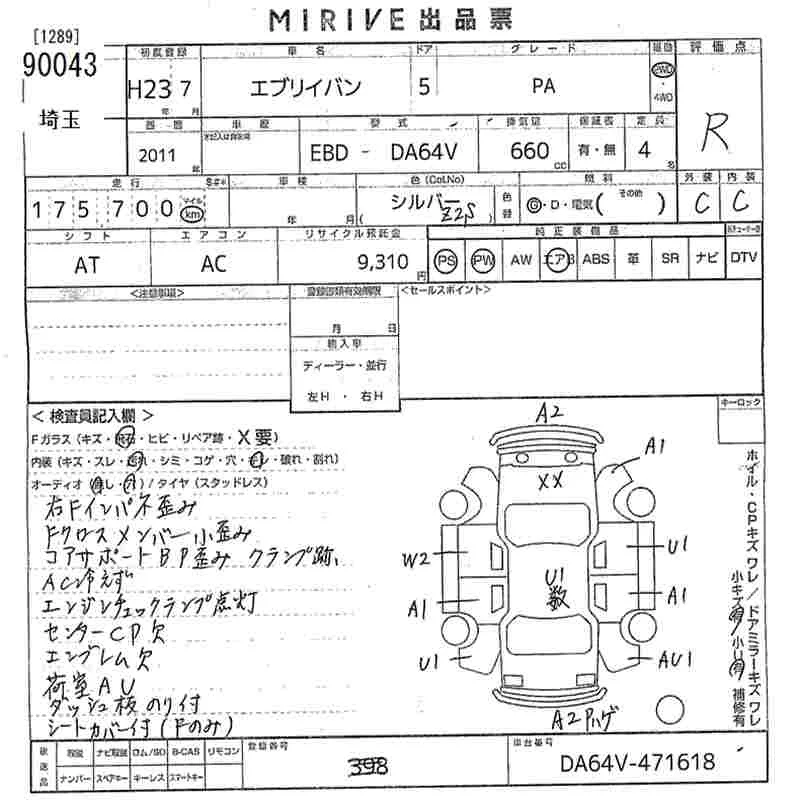 MIRIVE 出品票
[1289]
90043
埼玉
初度登録 車名 ドア グレード 駆動 評価点
H23 7 エブリイバン 5 PA 2WD 4WD R
年 月
西暦 車歴 型式 排気量 保証書 定員
2011 年 EBD - DA64V 660 CC 有・無 4 名
走行 車検 色(Col.No) 燃料 外装 内装
175,700 マイル km 年 月 シルバー Z2S 色替 G・D・電気( その他 ) C C
シフト エアコン リサイクル預託金 純正装備品
AT AC 9,310 円 PS PW AW エアB ABS 革 SR ナビ DTV
<注意事項> 登録書類有効期限 <セールスポイント>
月 日
輸入車
ディーラー・並行
左H ・ 右H
キーロック
< 検査員記入欄 >
Fガラス(キズ・飛石・ヒビ・リペア跡・X要)
内装(キズ・スレ・汚れ・シミ・コゲ・穴・キレ・破れ・割れ)
オーディオ(無し・外)/タイヤ(スタッドレス)
右Fインパネ歪み
Fクロスメンバー小歪み
コアサポートBP歪み クランプ跡、
AC冷えず
エンジンチェックランプ点灯
センターCP欠
エンブレム欠
荷室AU
ダッシュ板のり付
シートカバー付(Fのみ)
A2
A1
XX
W2
U1
U1
数
A1
A1
U1
AU1
A2Pハゲ
ホイル・CPキズワレ/ドアミラーキズワレ
小キズ有/小U有 補修有
後送品 取説 ナビ取説 ロム/SD B-CAS リモコン
ナンバー スペアキー キーレス スマートキー
登録番号
398
車台番号
DA64V-471618